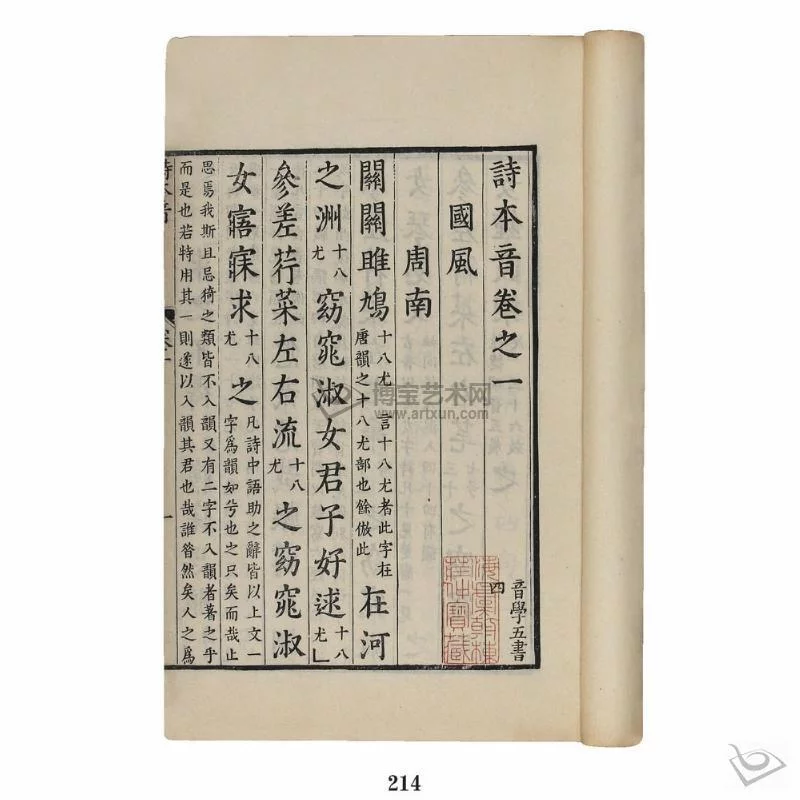 詩本音卷之一
音學五書
四
國風
周南
關關雎鳩十八尤 言十八尤者此字在唐韻之十八尤部也餘倣此在河
之洲十八尤窈窕淑女君子好逑十八尤
參差荇菜左右流十八尤之窈窕淑
女寤寐求十八尤之凡詩中語助之辭皆以上文一字爲韻如兮也之只矣而哉止
思焉我斯且忌猗之類皆不入韻又有二字不入韻者著之乎
而是也若特用其一則遂以入韻其君也哉誰昝然矣人之爲
詩本音
一
博宝艺术网
www.artxun.com
214